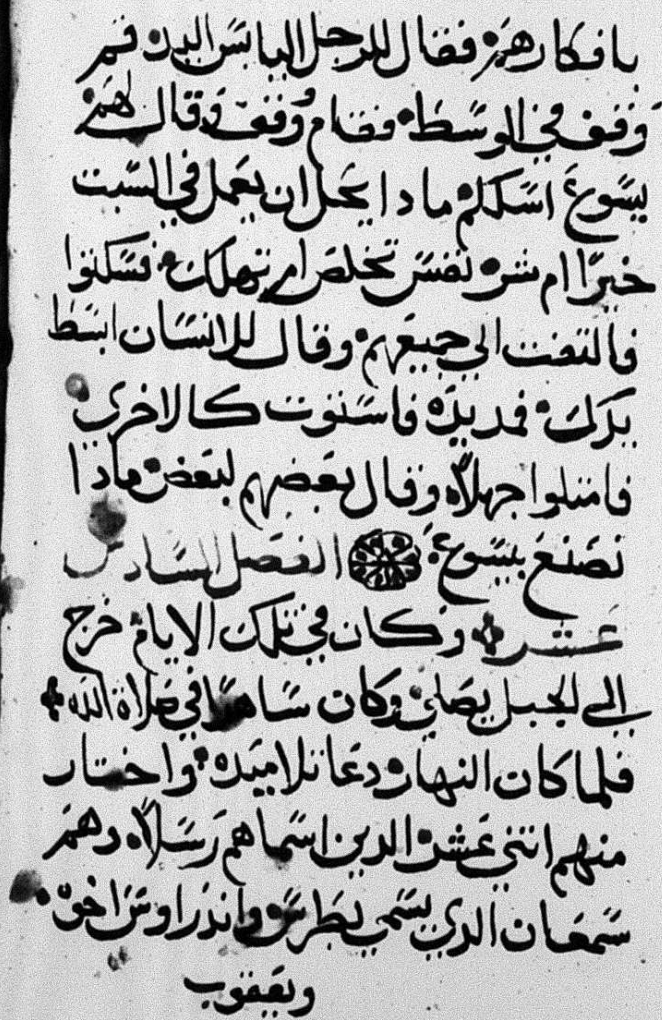 بافكارهم فقال للرجل اليابس اليد قم
وقف في الوسط فقام ووقف وقال لهم
يسوع اسلكم ماذا يحل ان يعمل في السبت
خيرًا ام شر نفس تخلص ام تهلك فسكتوا
فالتفت الي جميعهم وقال للانسان ابسط
يدك فمد يده فاستوت كالاخري
فامتلوا جهلًا وقال بعضهم لبعض ماذا
نصنع بيسوع الفصل السادس
عشر وكان في تلك الايام خرج
الي الجبل يصلي وكان ساهرًا في صلاة الله
فلما كان النهار دعا تلاميده واختار
منهم اثني عشر الدين اسماهم رسلًا وهم
سمعان الدي يسمي بطرس واندراوس اخوه
ويعقوب